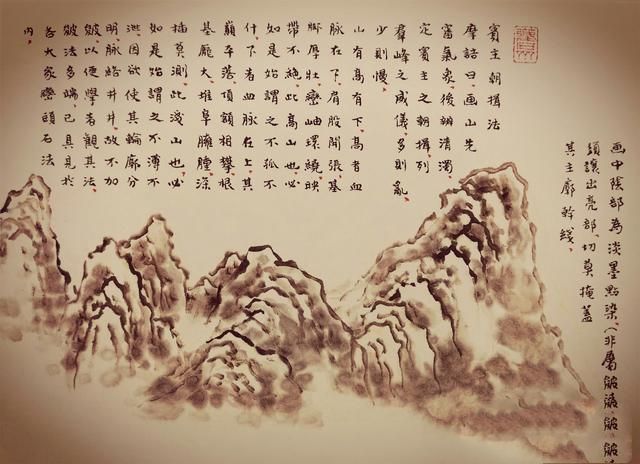 画中陰部為淡墨點染、(非屬皴
須讓出亮部、切莫掩蓋
其主廓幹綫、
賓主朝揖法
摩詰曰、画山先
審氣象、後辨清濁、
定賓主之朝揖、列
羣峰之威儀、多則亂、
少則慢、
山有高有下、高者血
脉在下、肩股開張、基
脚厚壯、巒岫環繞、映
帶不絕、此高山也、必
如是始謂之不孤不
什、下者血脉在上、其
巔半落、頂額相攀、根
基龐大、堆阜臃腫、深
插莫測、此淺山也、必
如是始謂之不薄不
泄、因欲使其輪廓分
明、脉絡井井、故不加
皴、以便學者觀其法、
皴法多端、已具見於
各大家巒頭石法
内、